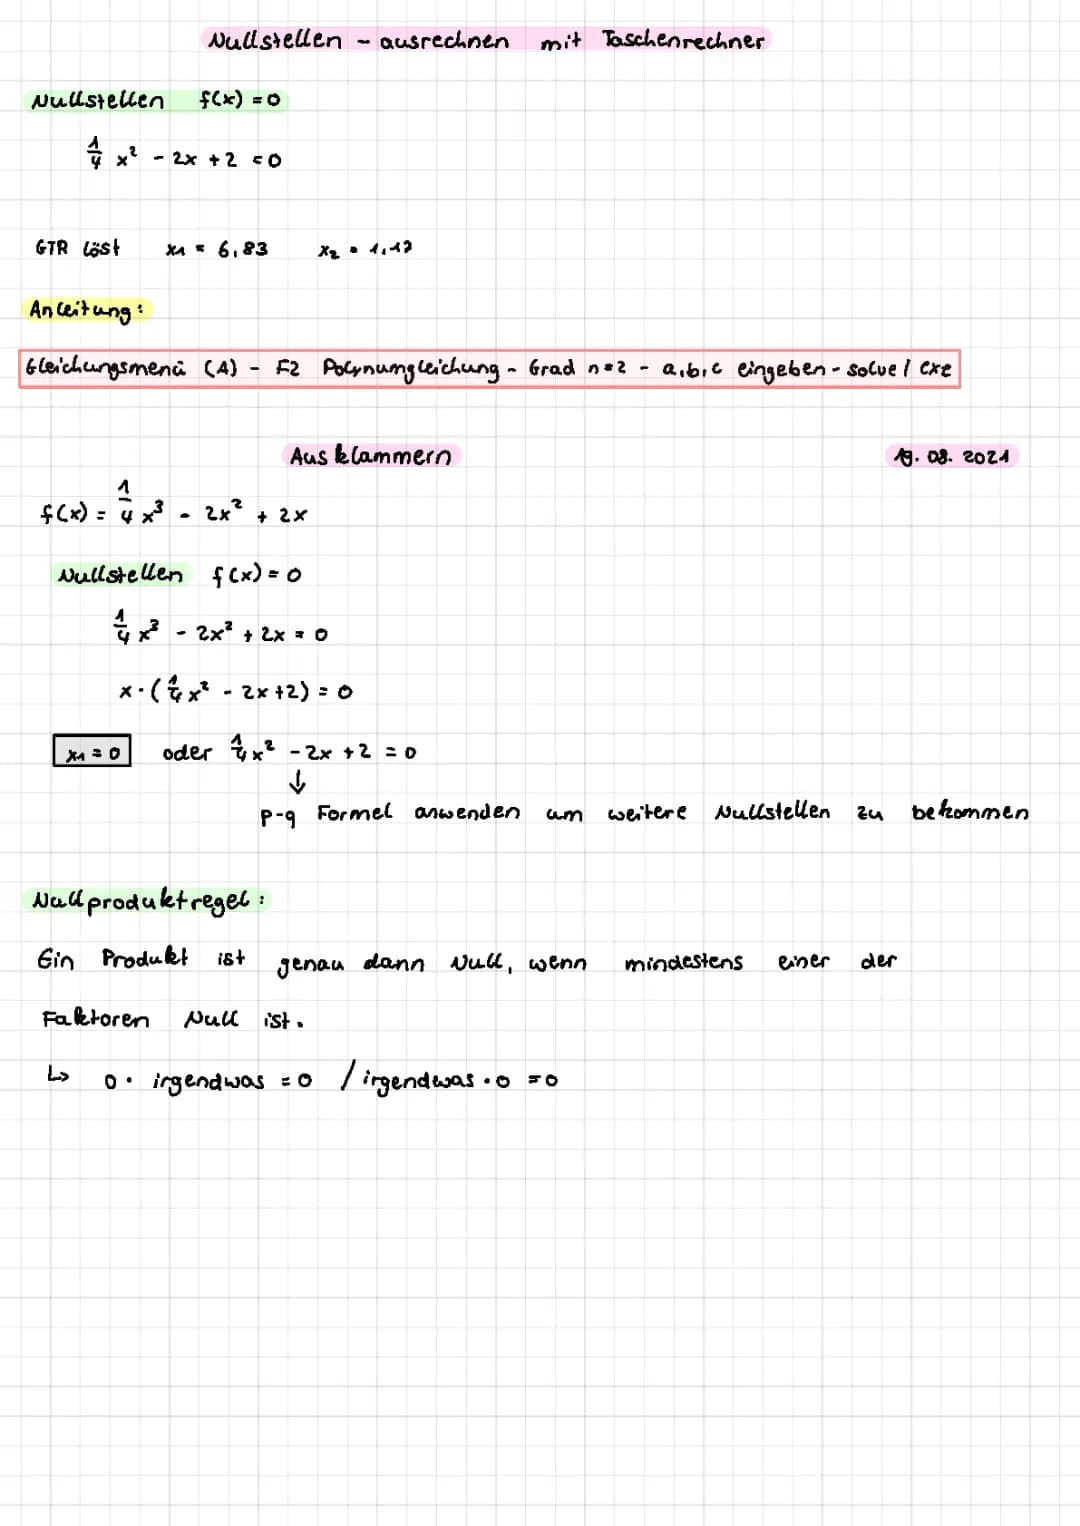 Nullstellen - ausrechnen mit Taschenrechner
Nullstellen f(x) = 0
1/4 x² - 2x + 2 = 0
GTR löst x₁ = 6,83 x₂ = 1,17
Anleitung:
Gleichungsmenü (A) - F2 Polynumgleichung - Grad n=2 - a,b,c eingeben - solve / exe
Ausklammern 19.08.2021
f(x) = 1/4 x³ - 2x² + 2x
Nullstellen f(x) = 0
1/4 x³ - 2x² + 2x = 0
x · (1/4 x² - 2x + 2) = 0
x₁ = 0 oder 1/4 x² - 2x + 2 = 0
↓
p-q Formel anwenden um weitere Nullstellen zu bekommen
Nullproduktregel:
Ein Produkt ist genau dann Null, wenn mindestens einer der
Faktoren Null ist.
↳ 0 · irgendwas = 0 / irgendwas · 0 = 0